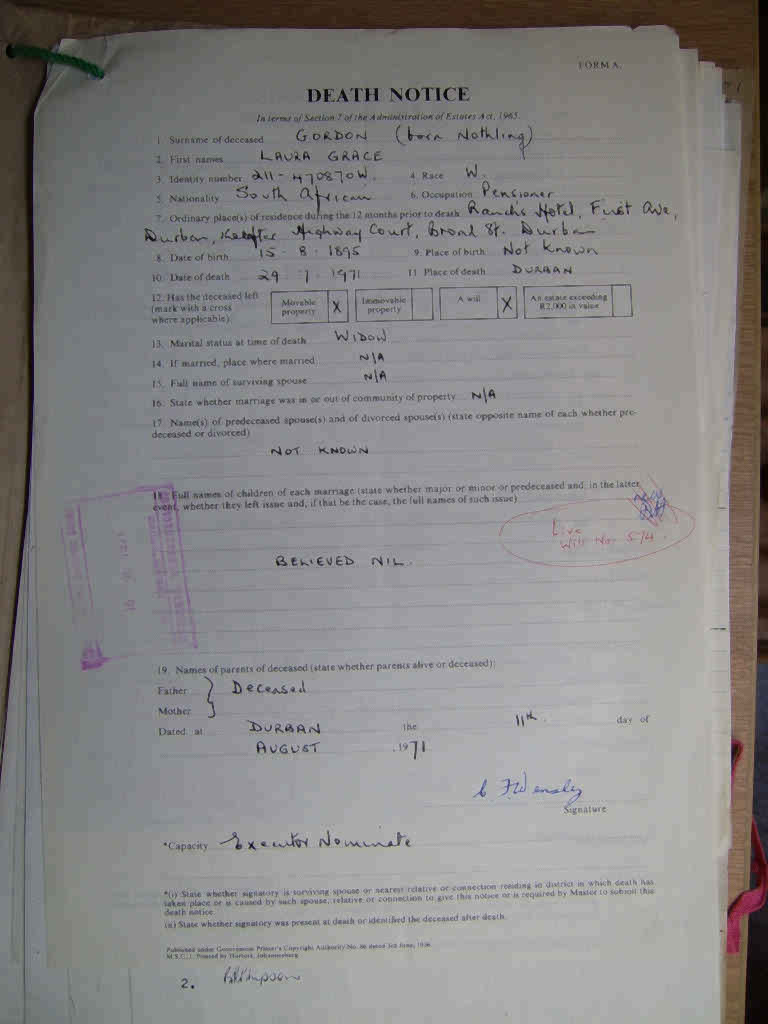 FORM A.
DEATH NOTICE
In terms of Section 7 of the Administration of Estates Act, 1965.
1. Surname of deceased GORDON (born Nothling)
2. First names LAURA GRACE
3. Identity number 211-470870W. 4. Race W.
5. Nationality South African 6. Occupation Pensioner
7. Ordinary place(s) of residence during the 12 months prior to death Ranch's Hotel, First Ave,
Durban, Highway Court, Broad St. Durban
8. Date of birth 15-8-1895 9. Place of birth Not Known
10. Date of death 29.7.1971 11. Place of death DURBAN
12. Has the deceased left
(mark with a cross
where applicable):
Movable property X Immovable property A will X An estate exceeding R2,000 in value
13. Marital status at time of death WIDOW
14. If married, place where married N/A
15. Full name of surviving spouse N/A
16. State whether marriage was in or out of community of property N/A
17. Name(s) of predeceased spouse(s) and of divorced spouse(s) (state opposite name of each whether pre-
deceased or divorced)
NOT KNOWN
18. Full names of children of each marriage (state whether major or minor or predeceased and, in the latter
event, whether they left issue and, if that be the case, the full names of such issue)
Live
Wills No. 574.
BELIEVED NIL.
19. Names of parents of deceased (state whether parents alive or deceased):
Father } Deceased
Mother
Dated at DURBAN the 11th. day of
AUGUST 1971
Signature
*Capacity Executor Nominate
*(i) State whether signatory is surviving spouse or nearest relative or connection residing in district in which death has
taken place or is caused by such spouse, relative or connection to give this notice or is required by Master to submit this
death notice.
(ii) State whether signatory was present at death or identified the deceased after death.
Published under Government Printer's Copyright Authority No. 86 dated 3rd June, 1936
M.S.C.J. Printed by Hortors, Johannesburg
2.